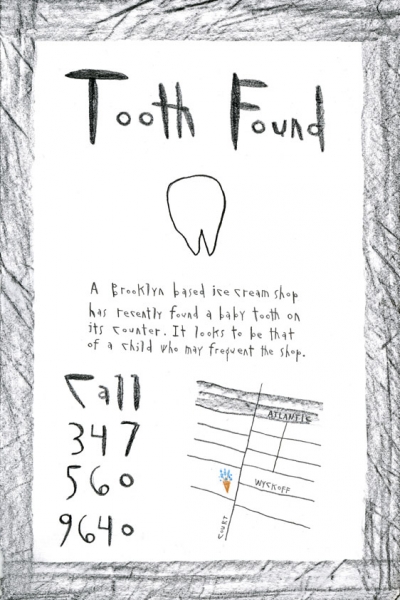 Tooth Found
A Brooklyn based ice cream shop
has recently found a baby tooth on
its counter. It looks to be that
of a child who may frequent the shop.
Call
347
560
9640
ATLANTIC
WYCKOFF
COURT